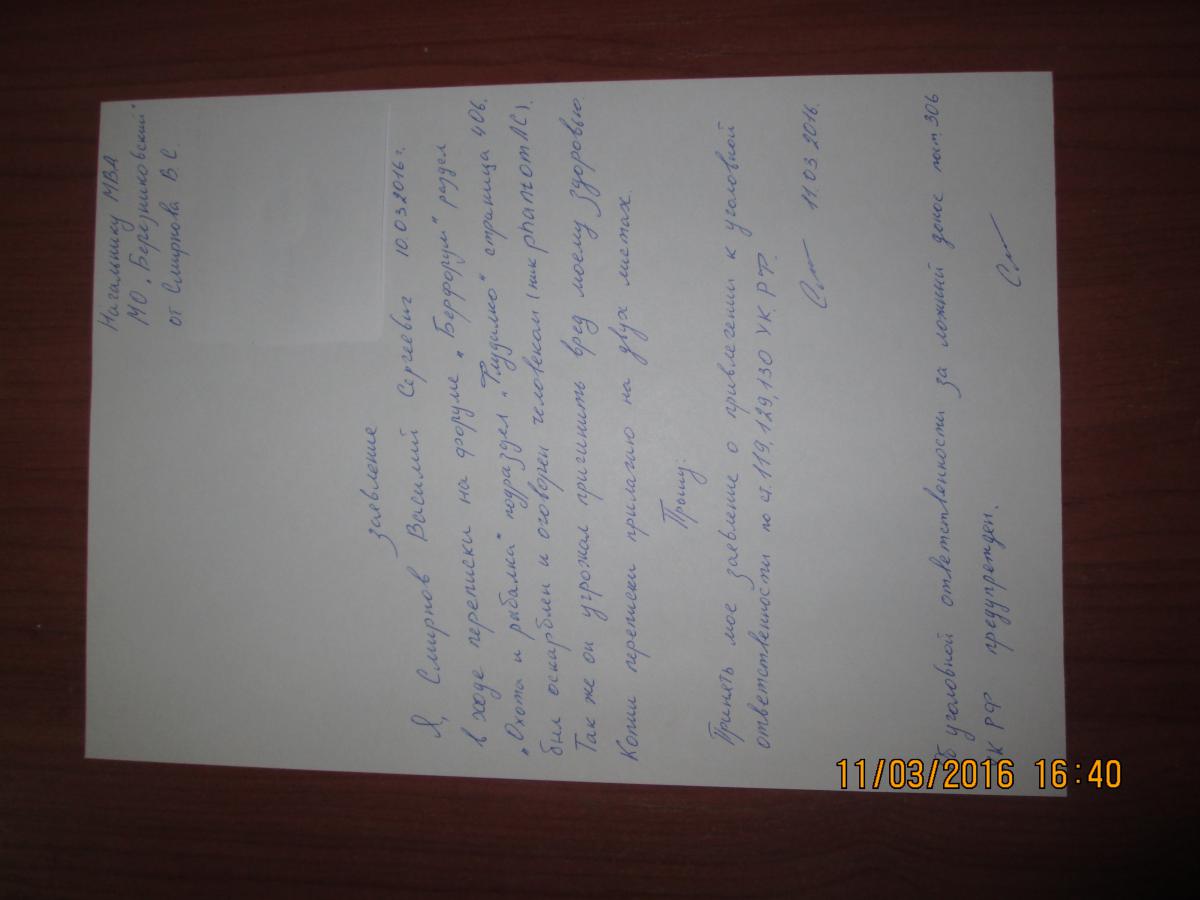 Начальнику МВД
МО „Березниковский"
от Смирнова В С.
заявление
Я, Смирнов Василий Сергеевич 10.03.2016 г.
в ходе переписки на форуме „Берфорум" раздел
„Охота и рыбалка" подраздел „Глудилко" страница 406.
был оскарблен и оговорен человеком (ник phantom ЛС).
Так же он угрожал причинить вред моему здоровью
Копии переписки прилагаю на двух листах.
Прошу:
Принять мое заявление о привлечении к уголовной
ответственности по ст. 119, 129, 130 УК РФ.
11.03 2016.
Об уголовной ответственности за ложний донос по ст. 306
УК РФ предупрежден.
11/03/2016 16:40